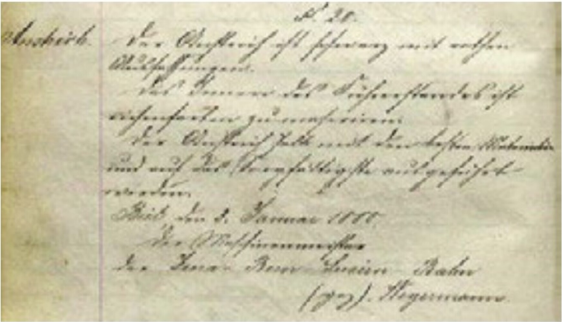 §. 28.
Anstrich.
Der Anstrich ist schwarz mit rothen
Das Innere des Führerstandes ist
eichenfarben zu maseriren.
Der Anstrich soll mit den besten Materialien
und auf das Sorgfältigste ausgeführt
werden.
den 2. Januar
Der Maschinenmeister
der Jura Bern Luzern Bahn
(gez). Weyermann.